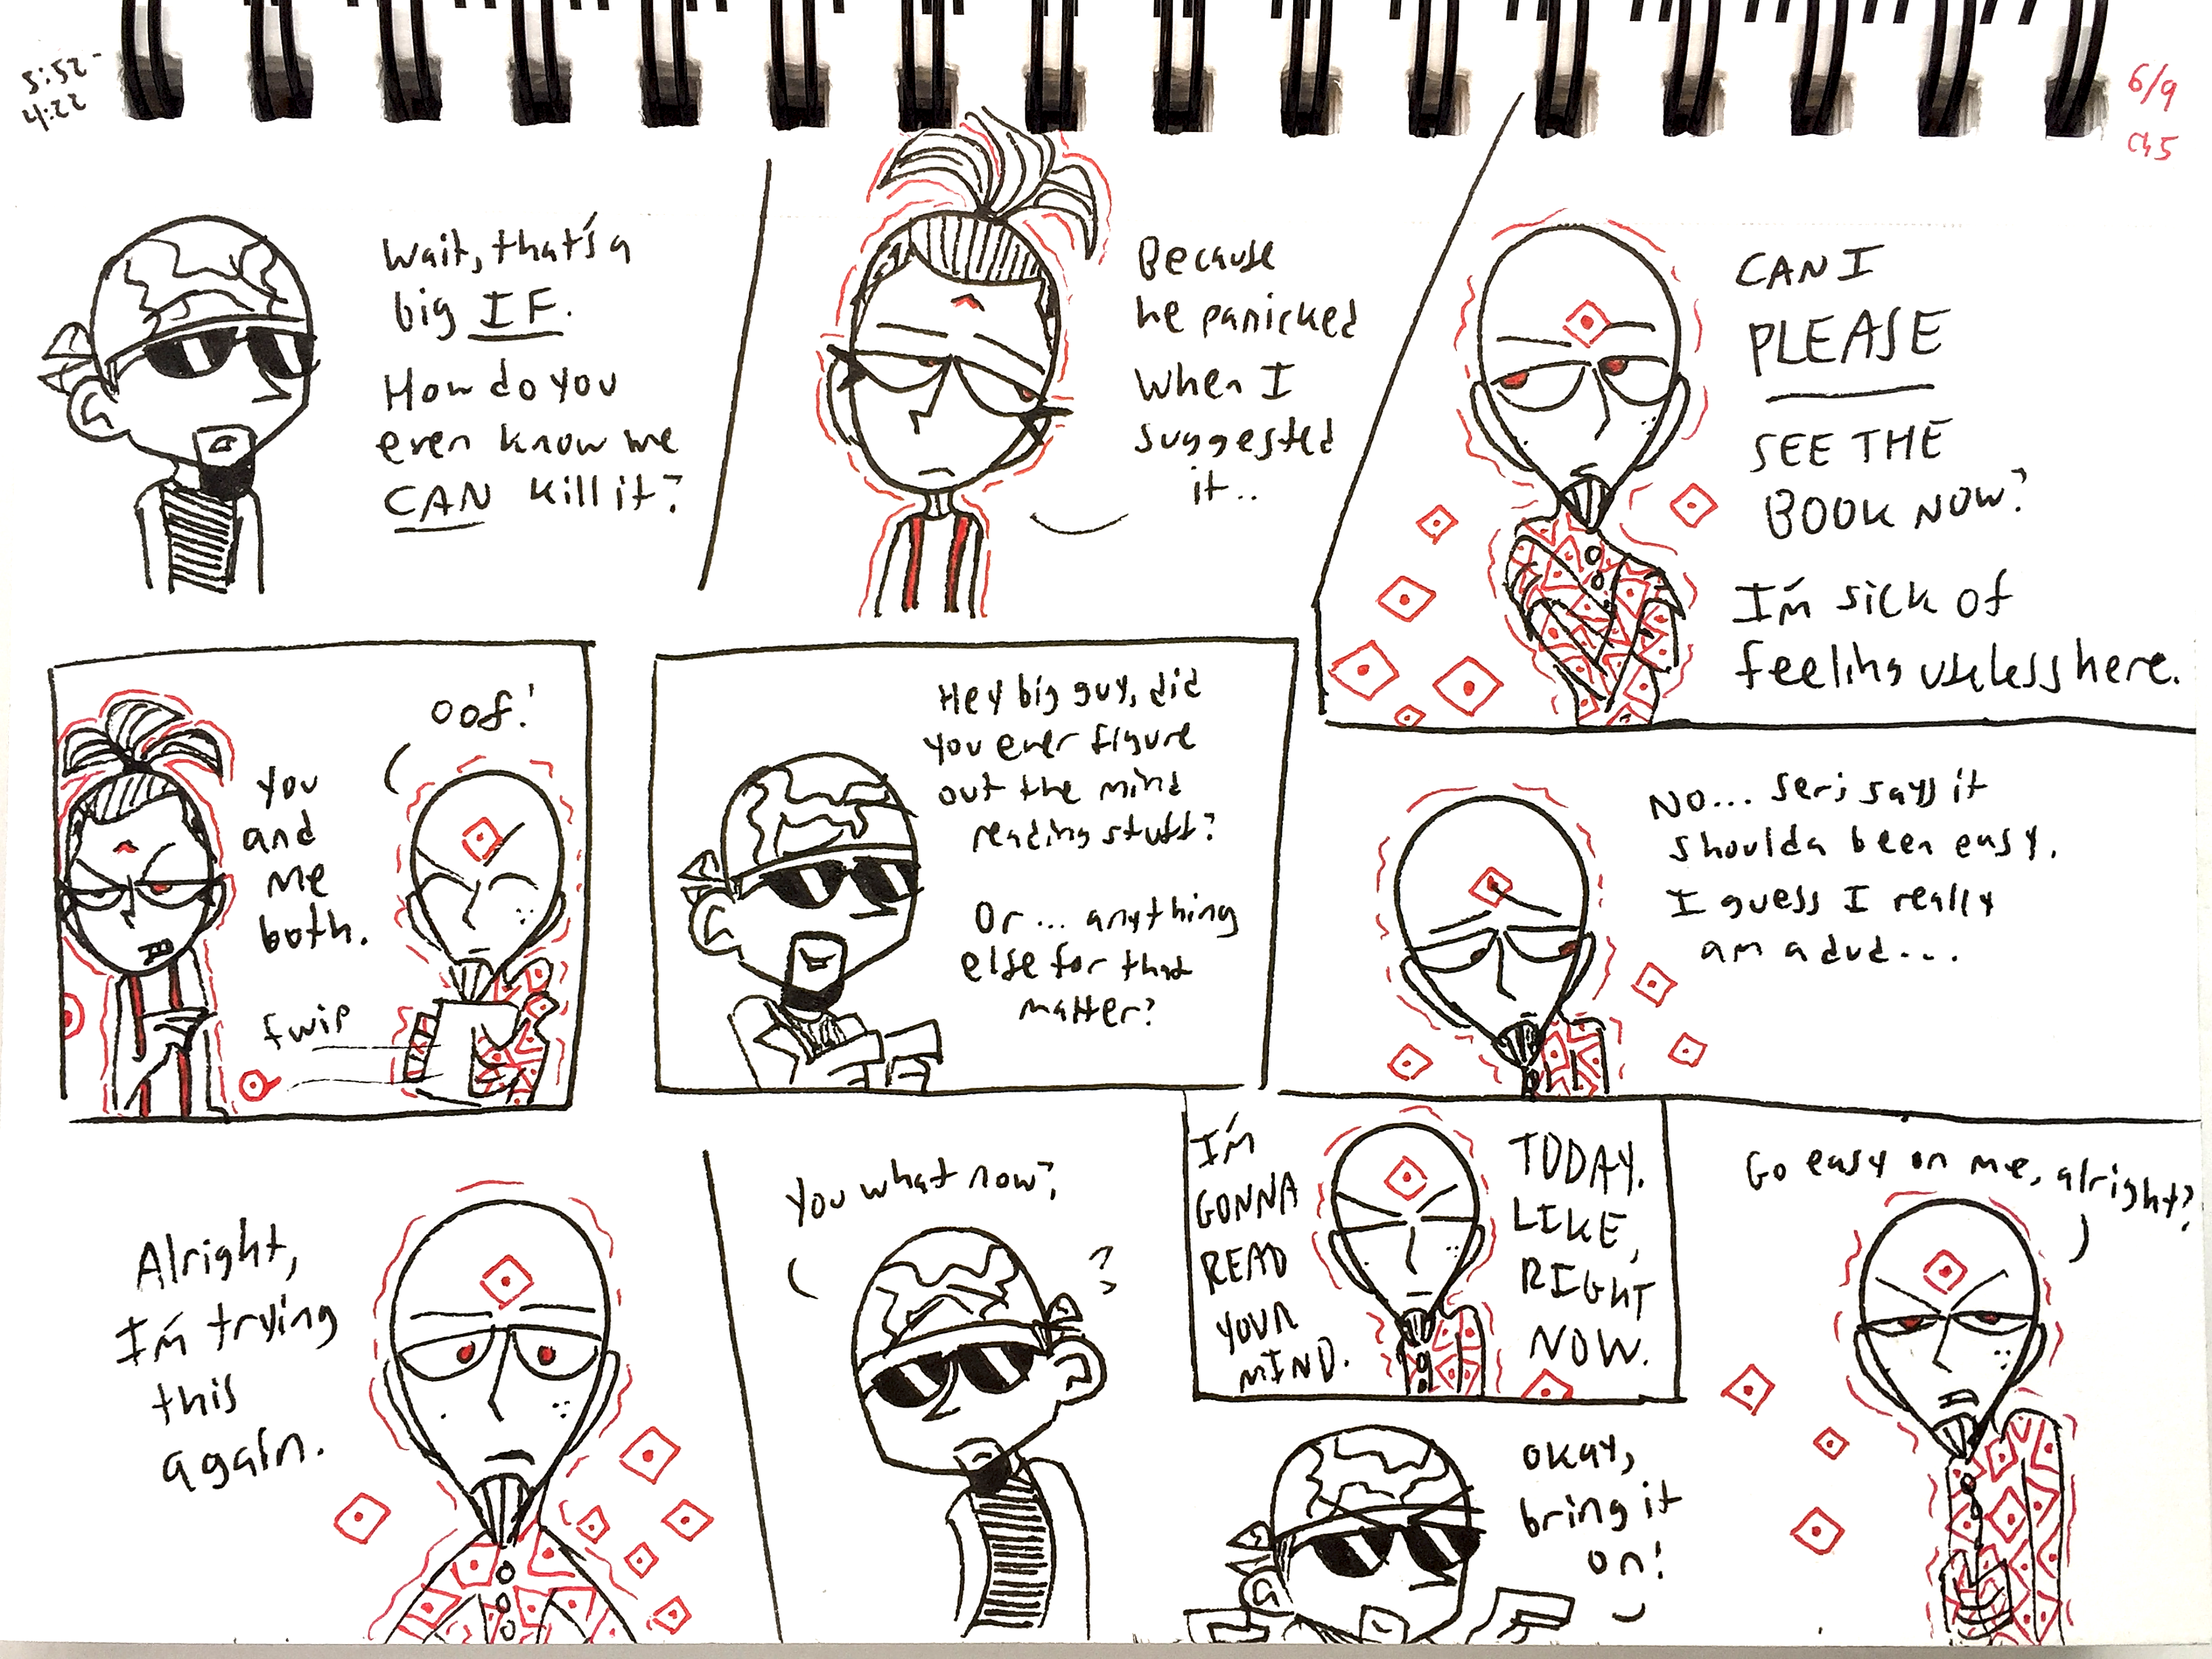 5:52-
4:22
6/9
Ch5
Wait, that's a
big IF.
How do you
even know we
CAN kill it?
Because
he panicked
when I
suggested
it..
CAN I
PLEASE
SEE THE
BOOK NOW?
I'm sick of
feeling useless here.
You
and
me
both.
oof!
fwip
Hey big guy, did
you ever figure
out the mind
reading stuff?
Or... anything
else for that
matter?
No... Seri says it
shoulda been easy.
I guess I really
am a dud...
Alright,
I'm trying
this
again.
You what now?
?
I'm
GONNA
READ
YOUR
MIND.
TODAY.
LIKE,
RIGHT
NOW.
okay,
bring it
on!
Go easy on me, alright?